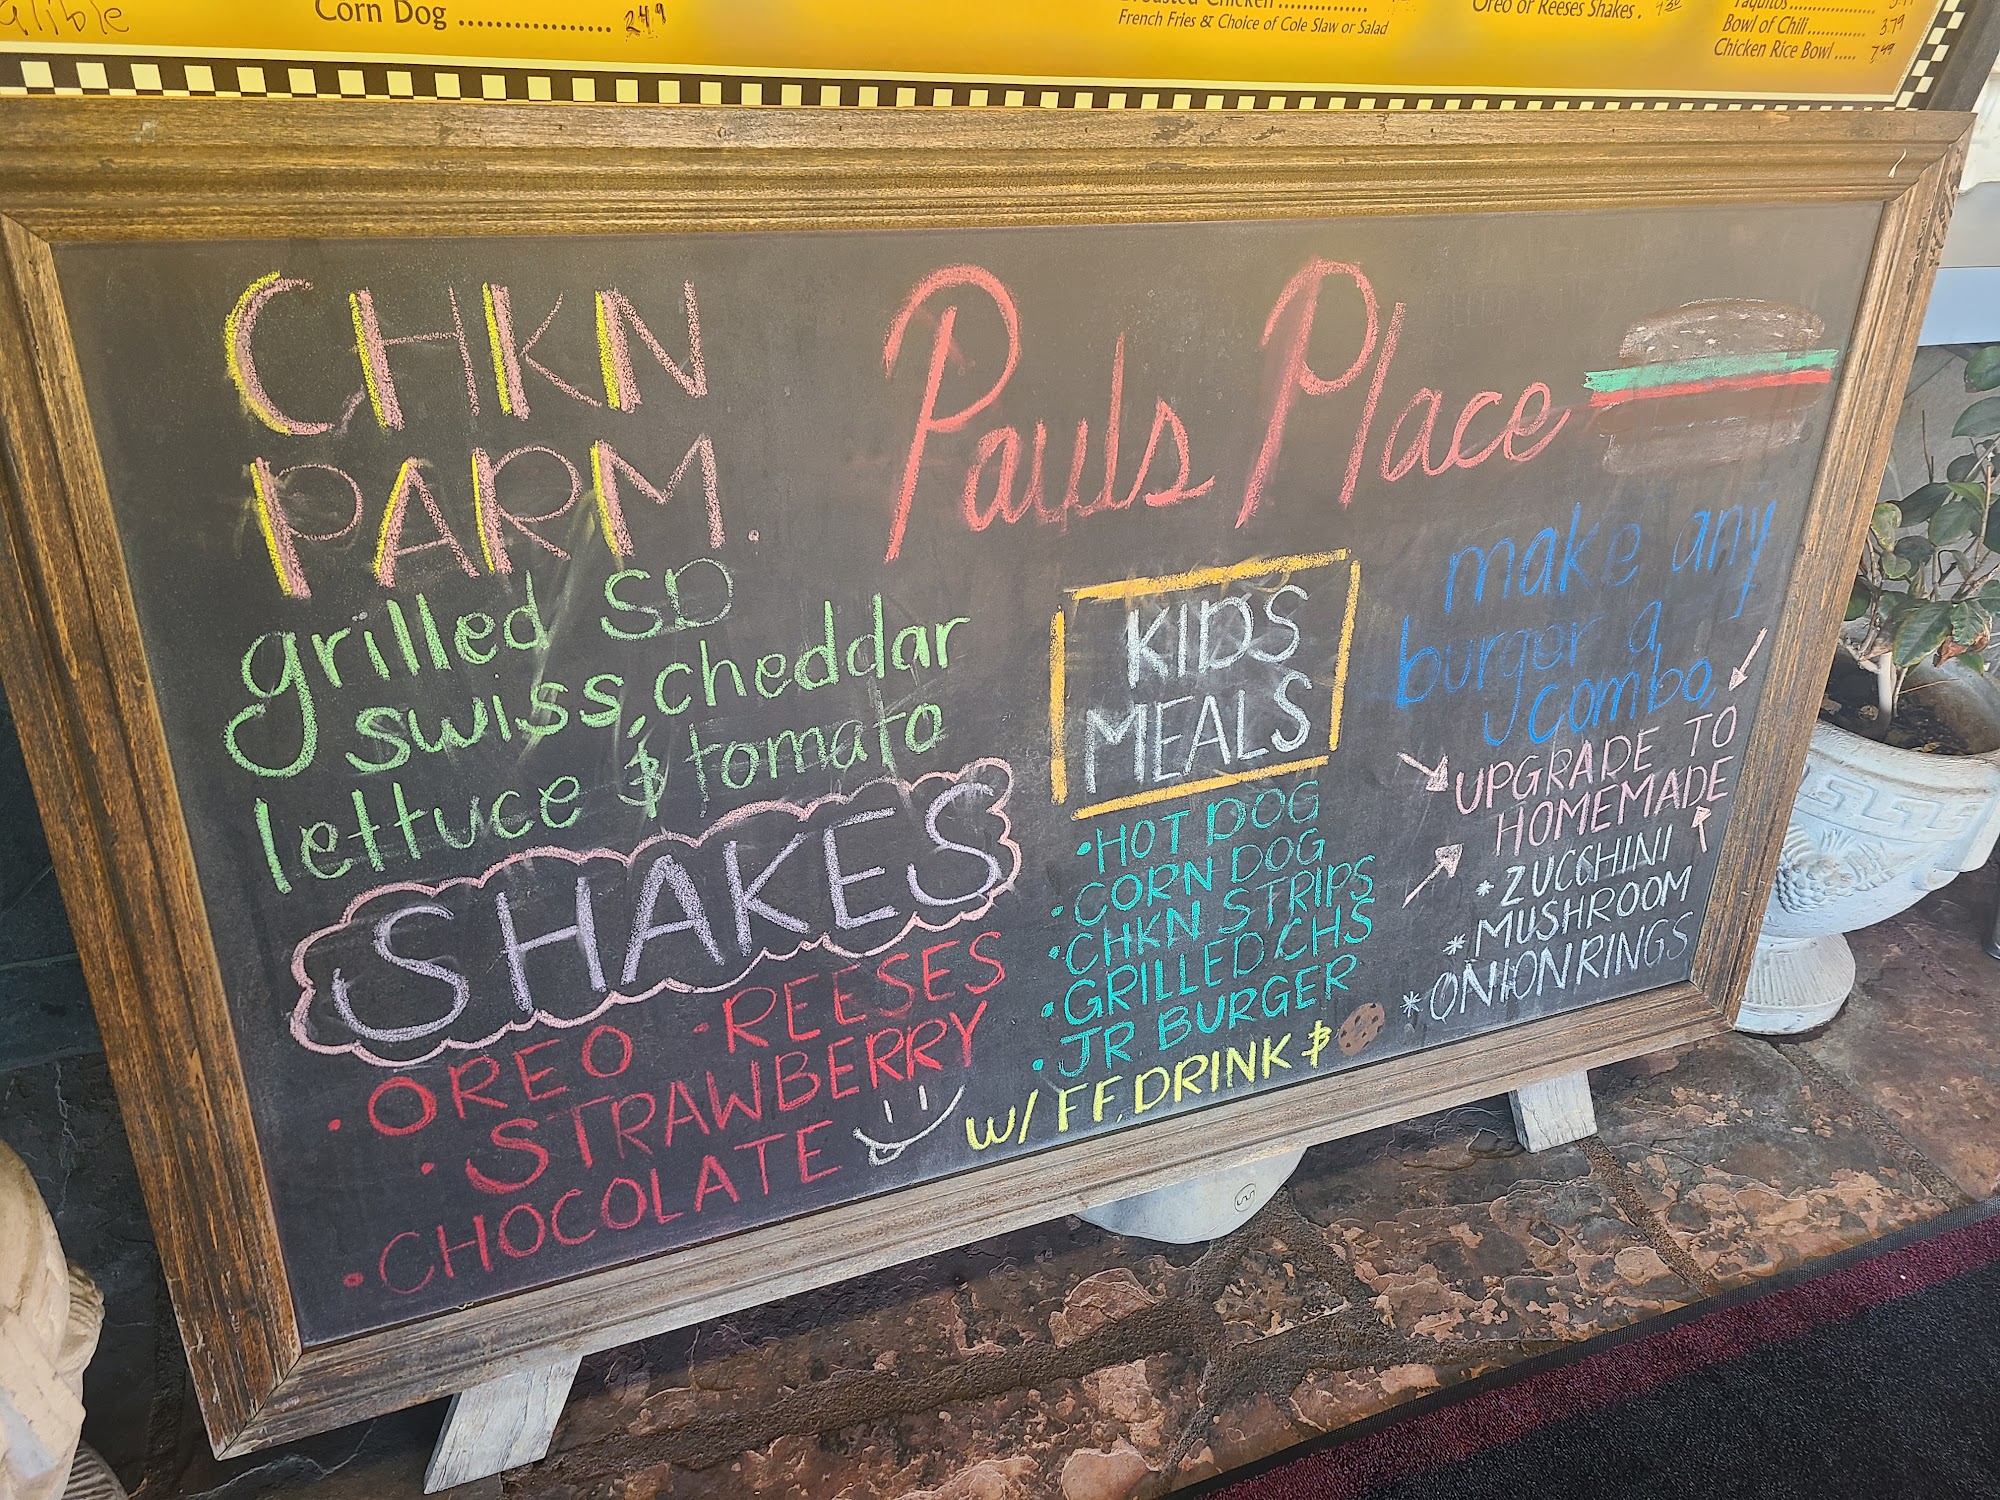 Corn Dog .................. 2.49
French Fries & Choice of Cole Slaw or Salad
Oreo or Reeses Shakes .
Taquitos
Bowl of Chili ............. 3.79
Chicken Rice Bowl ..... 7.49
CHKN
PARM.
grilled SD
swiss, cheddar
lettuce & tomato
SHAKES
• OREO • REESES
• STRAWBERRY
• CHOCOLATE
Pauls Place
KIDS
MEALS
• HOT DOG
• CORN DOG
• CHKN STRIPS
• GRILLED CHS
• JR. BURGER
W/ FF, DRINK &
make any
burger a
combo,
UPGRADE TO
HOMEMADE
* ZUCCHINI
* MUSHROOM
* ONION RINGS